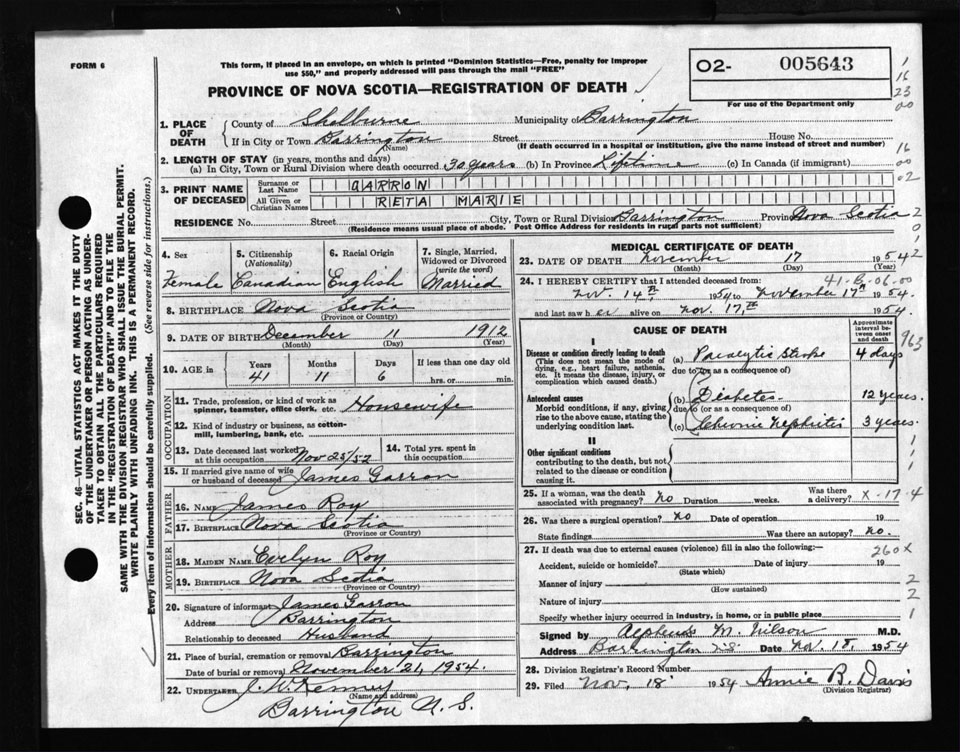 FORM 6
This form, if placed in an envelope, on which is printed "Dominion Statistics—Free, penalty for improper
use $50," and properly addressed will pass through the mail "FREE"
PROVINCE OF NOVA SCOTIA—REGISTRATION OF DEATH
O2- 005643
For use of the Department only
1
16
23
00
1. PLACE OF DEATH
County of Shelburne Municipality of Barrington
If in City or Town Barrington Street House No.
(Name) (If death occurred in a hospital or institution, give the name instead of street and number)
16
00
02
2. LENGTH OF STAY (in years, months and days)
(a) In City, Town or Rural Division where death occurred 30 years (b) In Province Lifetime (c) In Canada (if immigrant)
3. PRINT NAME OF DECEASED
Surname or Last Name GARRON
All Given or Christian Names RETA MARIE
RESIDENCE No. Street City, Town or Rural Division Barrington Province Nova Scotia
(Residence means usual place of abode. Post Office Address for residents in rural parts not sufficient)
2
0
1
2
SEC. 46—VITAL STATISTICS ACT MAKES IT THE DUTY
OF THE UNDERTAKER OR PERSON ACTING AS UNDER-
TAKER TO OBTAIN ALL THE PARTICULARS REQUIRED
IN THE "REGISTRATION OF DEATH" AND TO FILE THE
SAME WITH THE DIVISION REGISTRAR WHO SHALL ISSUE THE BURIAL PERMIT.
WRITE PLAINLY WITH UNFADING INK. THIS IS A PERMANENT RECORD.
Every item of information should be carefully supplied. (See reverse side for instructions.)
4. Sex
Female
5. Citizenship
(Nationality)
Canadian
6. Racial Origin
English
7. Single, Married,
Widowed or Divorced
(write the word)
Married
8. BIRTHPLACE Nova Scotia
(Province or Country)
9. DATE OF BIRTH December 11 1912
(Month) (Day) (Year)
10. AGE in
Years Months Days If less than one day old
41 11 6 hrs. or min.
OCCUPATION
11. Trade, profession or kind of work as
spinner, teamster, office clerk, etc. Housewife
12. Kind of industry or business, as cotton-
mill, lumbering, bank, etc.
13. Date deceased last worked
at this occupation Nov 25/52
14. Total yrs. spent in
this occupation
15. If married give name of wife
or husband of deceased James Garron
FATHER
16. NAME James Roy
17. BIRTHPLACE Nova Scotia
(Province or Country)
MOTHER
18. MAIDEN NAME Evelyn Roy
19. BIRTHPLACE Nova Scotia
(Province or Country)
20. Signature of informant James Garron
Address Barrington
Relationship to deceased Husband
21. Place of burial, cremation or removal Barrington
Date of burial or removal November 21, 1954.
22. UNDERTAKER J. W. Kenney
(Name and address)
Barrington N. S.
MEDICAL CERTIFICATE OF DEATH
23. DATE OF DEATH November 17 1954
(Month) (Day) (Year)
24. I HEREBY CERTIFY that I attended deceased from
41-B-06.00
Nov. 14th 1954 to November 17th 1954.
and last saw her alive on Nov. 17th 1954.
CAUSE OF DEATH
Approximate
interval be-
tween onset
and death
963
I
Disease or condition directly leading to death
(This does not mean the mode of
dying, e.g., heart failure, asthenia,
etc. It means the disease, injury, or
complication which caused death.)
(a) Paralytic Stroke 4 days
due to (or as a consequence of)
Antecedent causes
Morbid conditions, if any, giving
rise to the above cause, stating the
underlying condition last.
(b) Diabetes 12 years.
due to (or as a consequence of)
(c) Chronic Nephritis 3 years.
II
Other significant conditions
contributing to the death, but not
related to the disease or condition
causing it.
1
1
1
25. If a woman, was the death
associated with pregnancy? no Duration weeks. Was there
a delivery? X-17.4
26. Was there a surgical operation? no Date of operation 19
State findings Was there an autopsy? no.
27. If death was due to external causes (violence) fill in also the following:—
260x
Accident, suicide or homicide? Date of injury 19
(State which)
Manner of injury 2
(How sustained)
Nature of injury 2
Specify whether injury occurred in industry, in home, or in public place 1
Signed by Alpheus M. Wilson M.D.
Address Barrington N.S. Date Nov. 18, 1954
28. Division Registrar's Record Number
29. Filed Nov. 18 1954 Annie B. Davis
(Division Registrar)